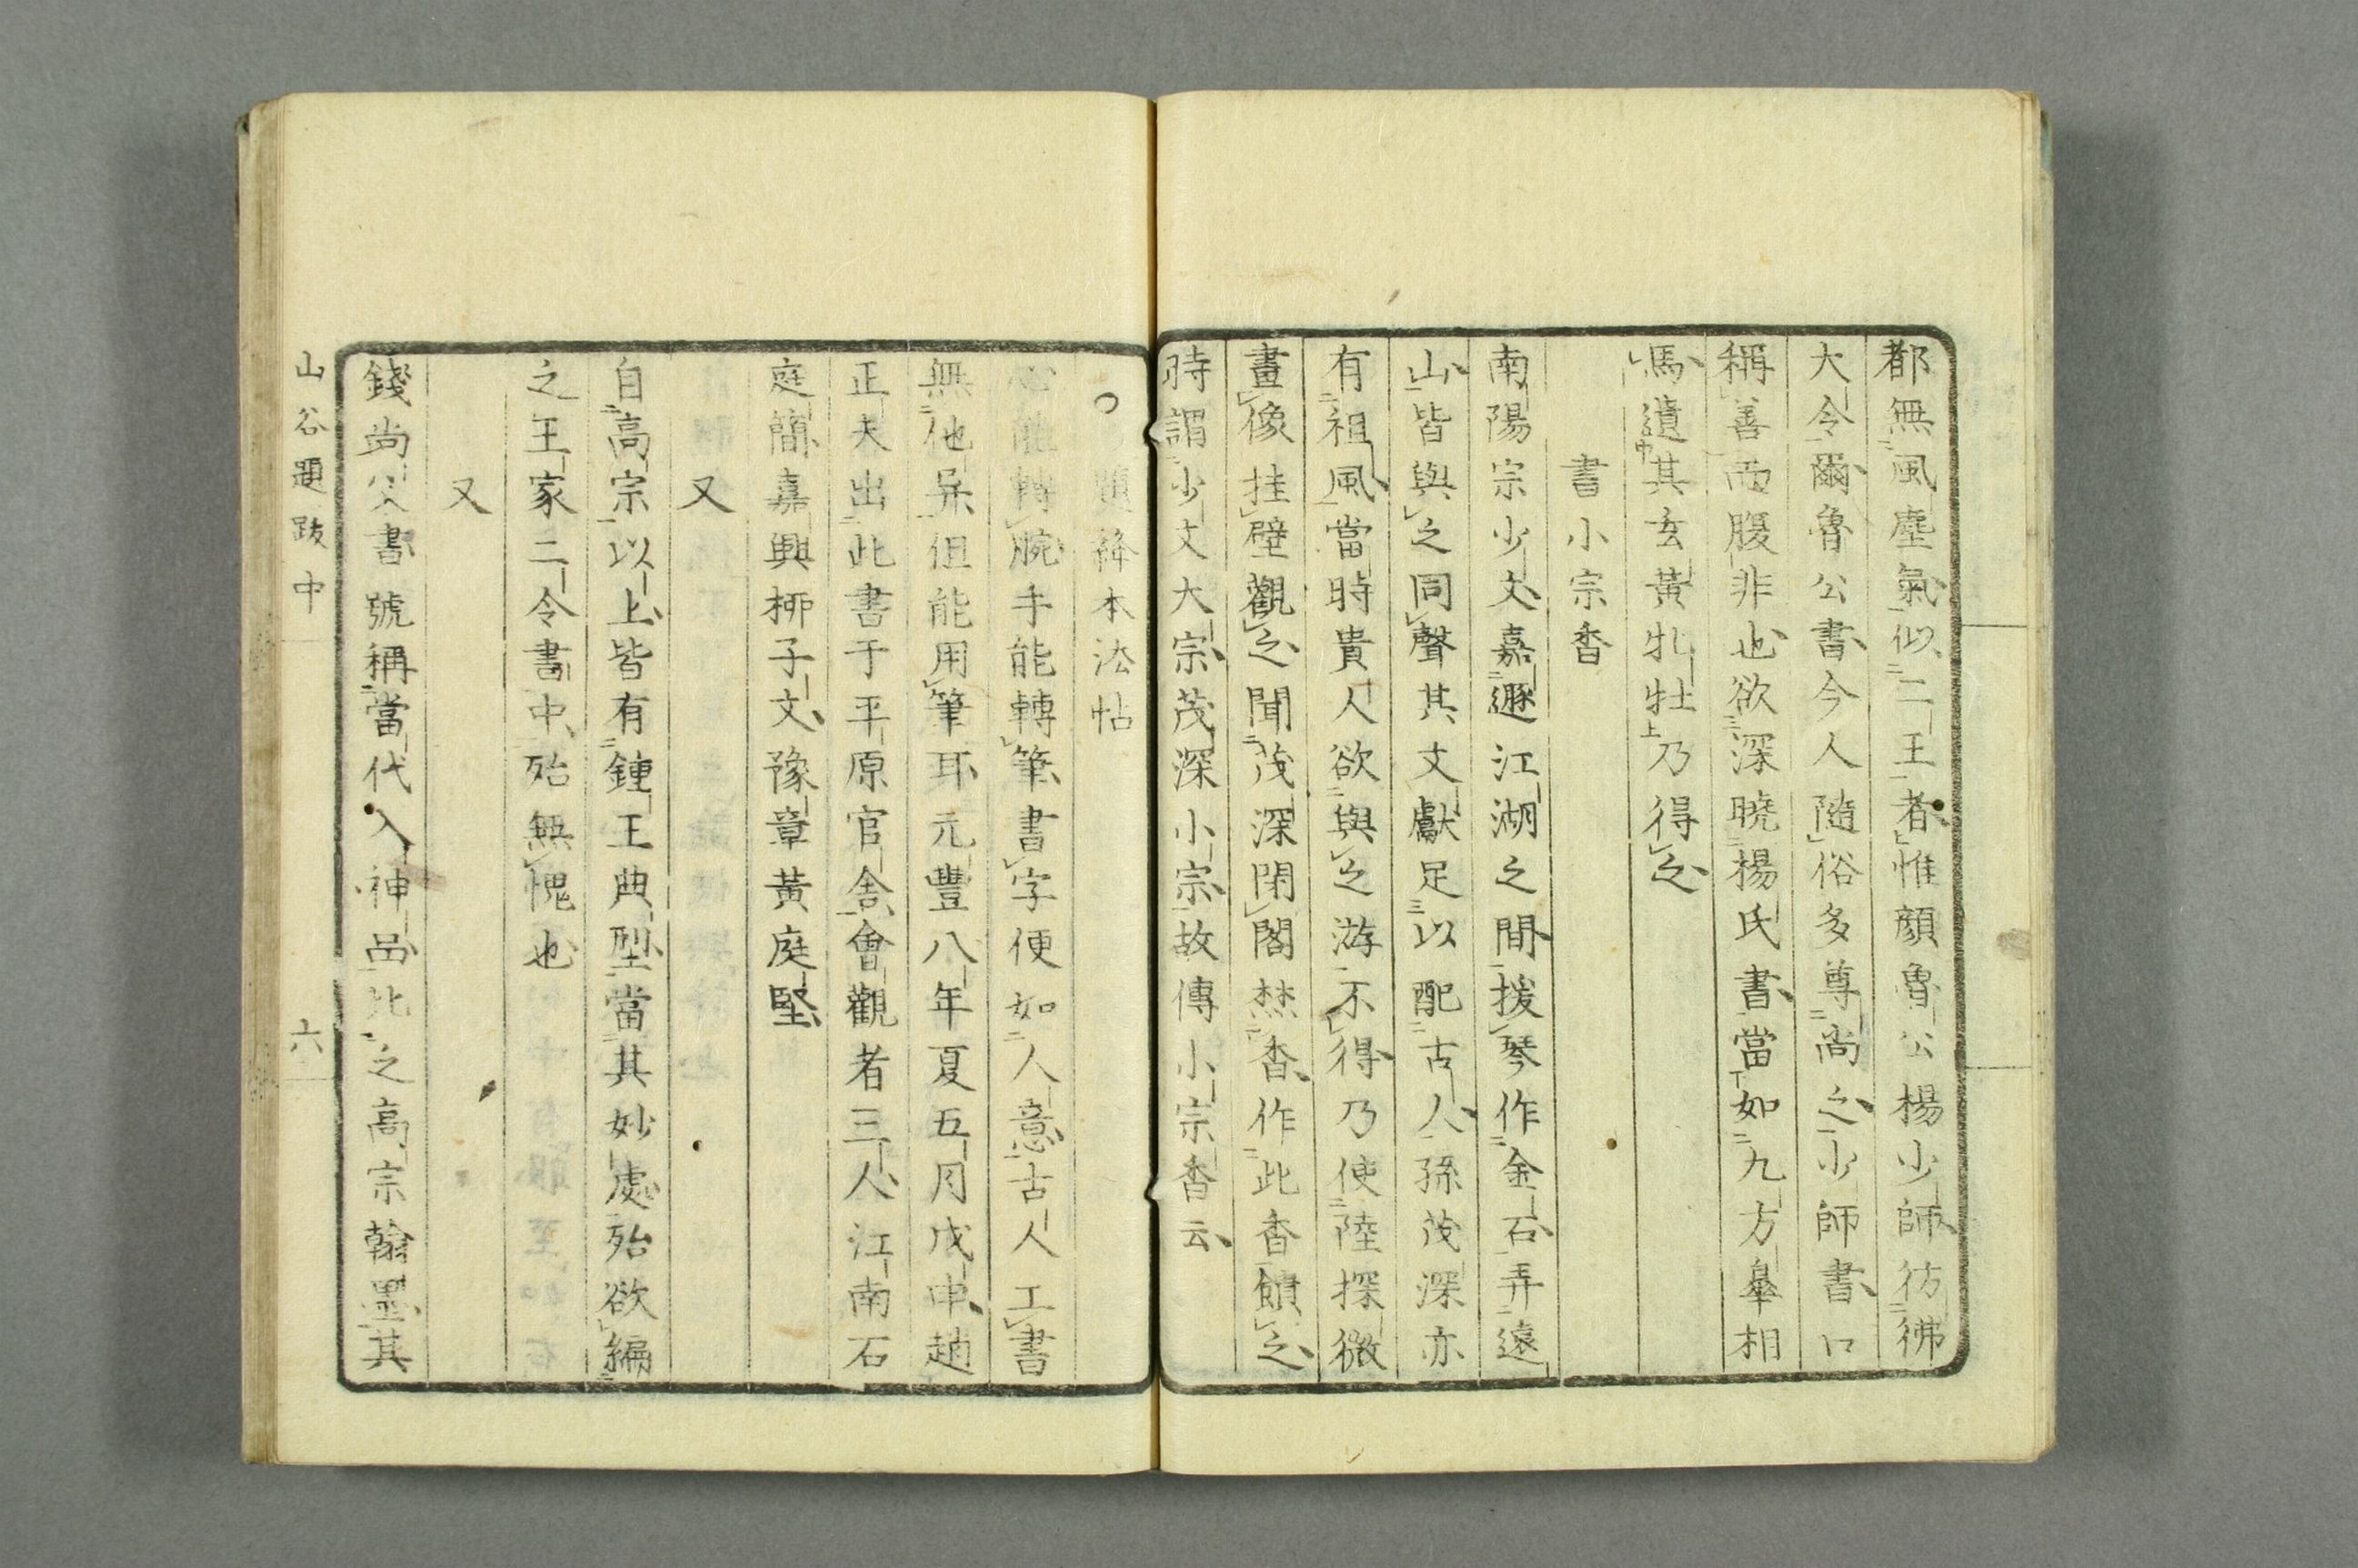 都無風塵氣似二王者惟顔魯公楊少師彷彿
大令爾魯公書今人隨俗多尊尚之少師書口
稱善而腹非也欲深曉楊氏書當如九方皋相
馬遺其玄黃牝牡乃得之
書小宗香
南陽宗少文嘉遯江湖之間援琴作金石弄遠
山皆與之同聲其文獻足以配古人孫茂深亦
有祖風當時貴人欲與之游不得乃使陸探微
畫像挂壁觀之聞茂深閉閣焚香作此香饋之
時謂少文大宗茂深小宗故傳小宗香云
○題絳本法帖
心能轉腕手能轉筆書字便如人意古人工書
無他異但能用筆耳元豐八年夏五月戊申趙
正夫出此書于平原官舍會觀者三人江南石
庭簡嘉興柳子文豫章黃庭堅
又
自高宗以上皆有鍾王典型當其妙處殆欲編
之王家二令書中殆無愧也
又
錢尚父書號稱當代入神品比之高宗翰墨其
山谷題跋中
六